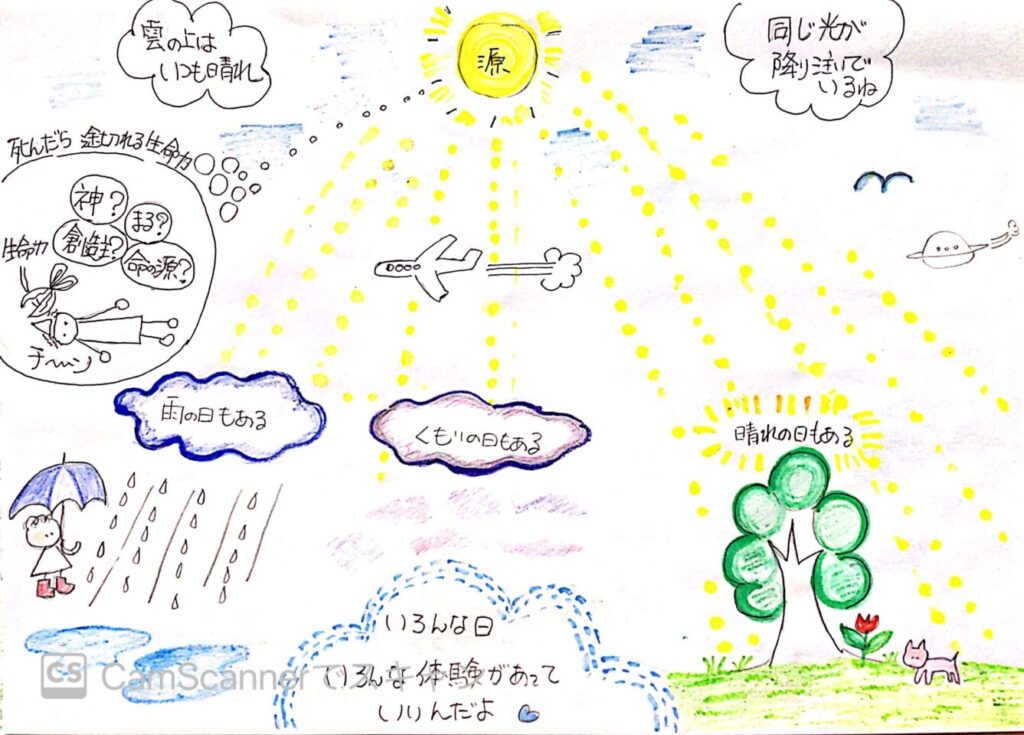 雲の上は
いつも晴れ
源
同じ光が
降り注いで
いるね
死んだら 途切れる生命力
神?
まる?
創造主?
命の源?
生命力
チーン
雨の日もある
くもりの日もある
晴れの日もある
いろんな日
いろんな体験があって
いいんだよ
CS CamScanner で